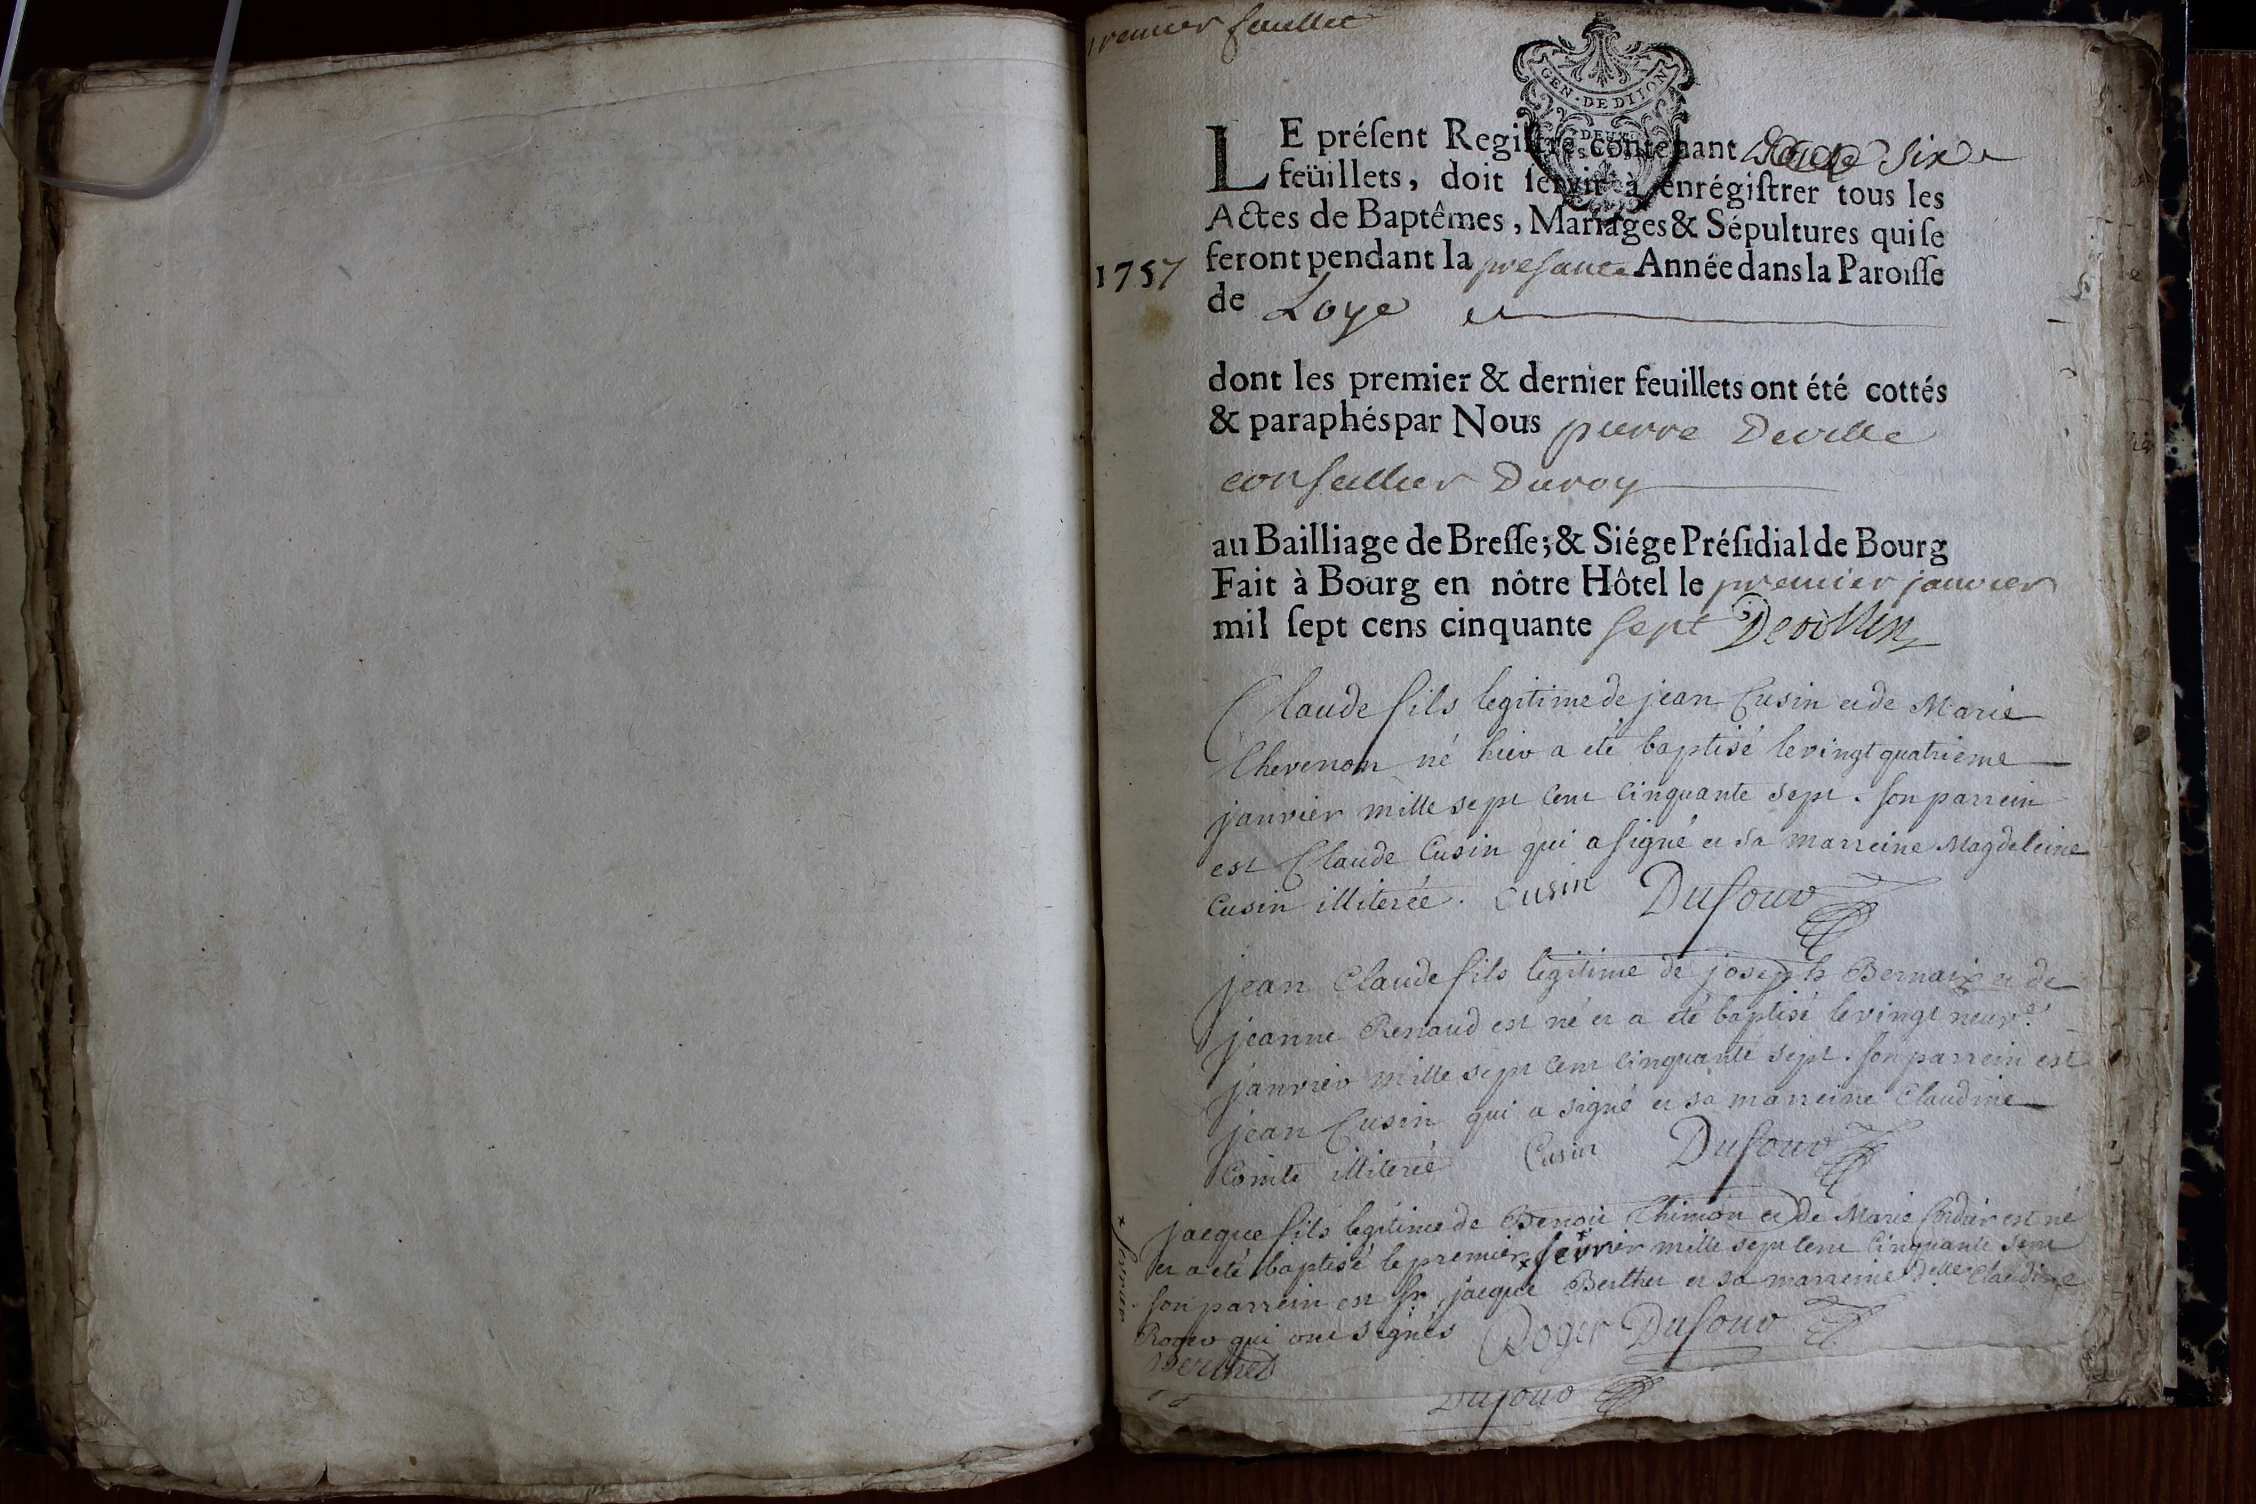 premier feuillet
GEN. DE DIJON
DEUX
LE préſent Regiſtre contenant six
feüillets, doit ſervir à enrégiſtrer tous les
Actes de Baptêmes, Mariages & Sépultures qui ſe
feront pendant la presante Année dans la Paroiſſe
1757
de Loye et
dont les premier & dernier feuillets ont été cottés
& paraphés par Nous pierre Deville
conseillier Du roy
au Bailliage de Breſſe; & Siége Préſidial de Bourg
Fait à Bourg en nôtre Hôtel le premier janvier
mil ſept cens cinquante sept
Claude fils legitime de jean Cusin et de Marie
Chevenon né hier a eté baptisé le vingt quatrieme
janvier mille sept cent cinquante sept. son parrein
est Claude Cusin qui a signé et sa marreine Magdeleine
Cusin illiterée. Cusin Dufour
jean Claude fils legitime de joseph Bernaix et de
jeanne Renaud est né et a eté baptisé le vingt neuv.e
janvier mille sept cent cinquante sept. son parrein est
jean Cusin qui a signé et sa marreine Claudine
Comte illiterée Cusin Dufour
jacque fils legitime de Benoit Thimon et de Marie est né
et a eté baptisé le premier x fevrier mille sept cent cinquante sept
x fevrier
son parrein est Sr. jacque Berthet et sa marreine Delle Claudine
Roger qui ont signés Roger Dufour
Berthet
Dufour